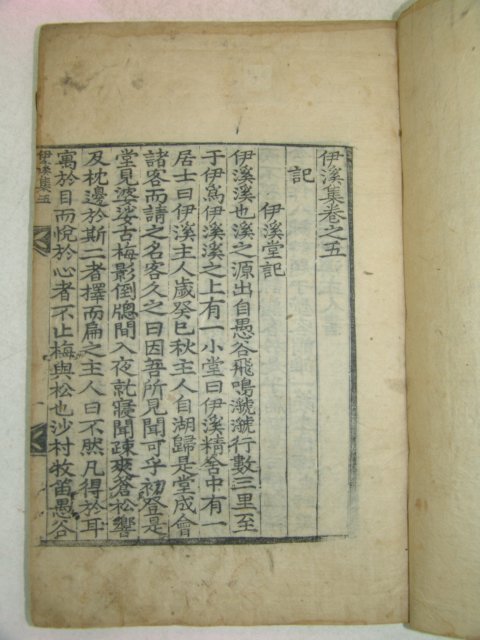 伊溪集卷之五
記
伊溪堂記
伊溪溪也溪之源出自愚谷飛鳴虢虢行數三里至
于伊爲伊溪溪之上有一小堂曰伊溪精舍中有一
居士曰伊溪主人歲癸巳秋主人自湖歸是堂成會
諸客而請之名客久之曰因吾所見聞可乎初登是
堂見婆娑古梅影倒牕間入夜就寢聞疎爽蒼松響
及枕邊於斯二者擇而扁之主人曰不然凡得於耳
寓於目而悅於心者不止梅與松也沙村牧笛愚谷
伊溪集 五